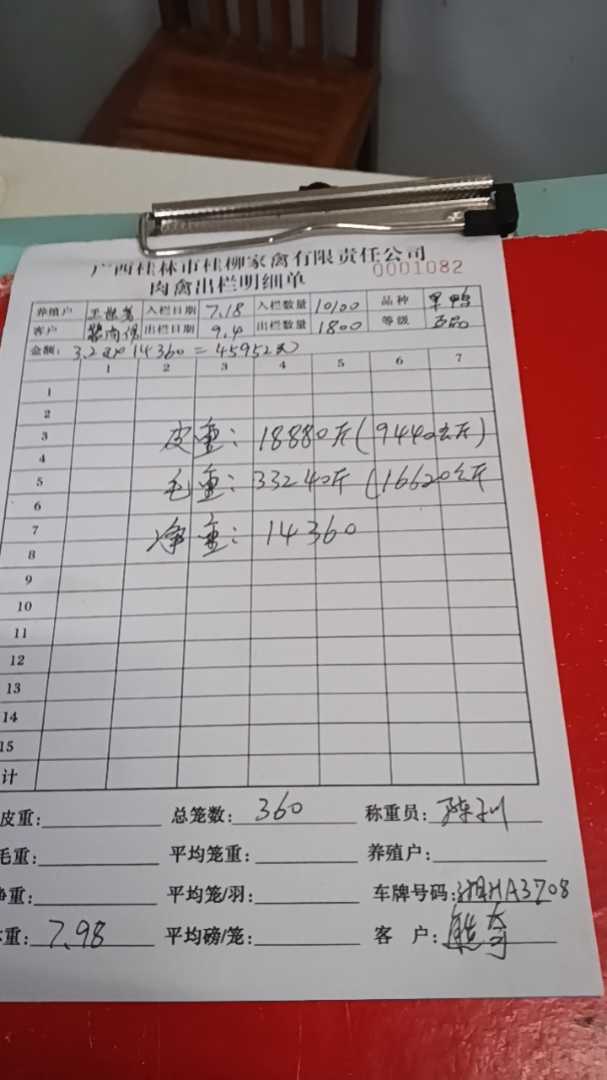 广西桂林市桂柳家禽有限责任公司
0001082
肉禽出栏明细单
养殖户 王世 入栏日期 7.18 入栏数量 10100 品种 黑鸭
客户 出栏日期 9.4 出栏数量 1800 等级 正品
金额: 3.2元×14360=45952元
1 2 3 4 5 6 7
1
2
3 皮重: 18880斤(9440公斤)
4
5 毛重: 33240斤(16620公斤
6
7 净重: 14360
8
9
10
11
12
13
14
15
计
皮重: 总笼数: 360 称重员:
毛重: 平均笼重: 养殖户:
净重: 平均笼/羽: 车牌号码: 湘HA3708
重: 7.98 平均磅/笼: 客 户: 熊奇